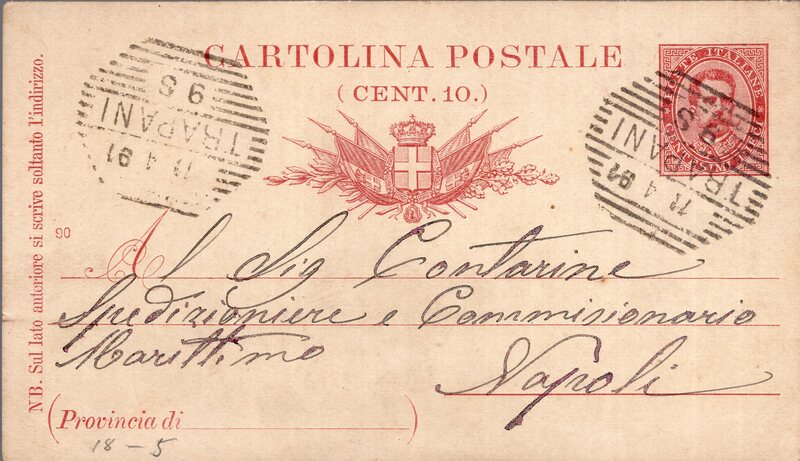 CARTOLINA POSTALE
(CENT. 10.)
POSTE ITALIANE
CENTESIMI DIECI
TRAPANI
11 4 91
9 S
TRAPANI
11 4 91
NB. Sul lato anteriore si scrive soltanto l'indirizzo.
90
Al Sig Contarine
Spedizioniere e Commisionario
Marittimo
Napoli
(Provincia di )
18-5